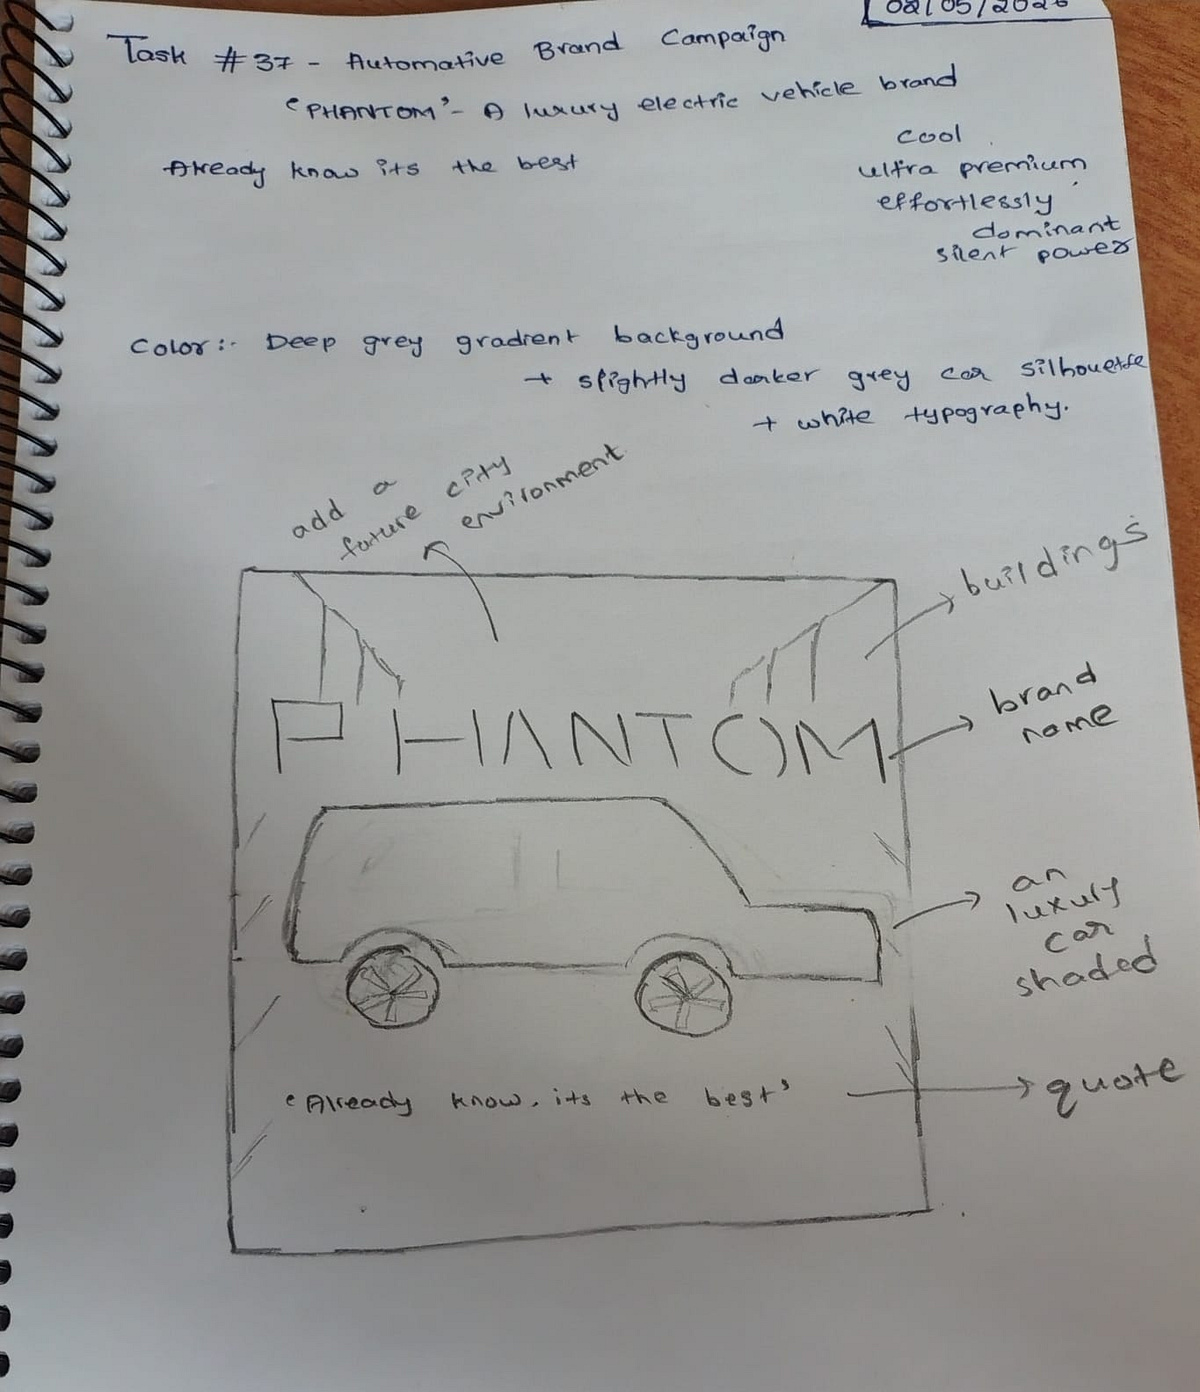 02/05/2026
Task #37 - Automative Brand Campaign
'PHANTOM' - A luxury electric vehicle brand
Already know its the best
cool
ultra premium
effortlessly
dominant
silent power
Color:- Deep grey gradient background
+ slightly darker grey car silhouette
+ white typography.
add a
future city
environment
buildings
PHANTOM
brand
name
an
luxury
car
shaded
'Already know, its the best'
quote